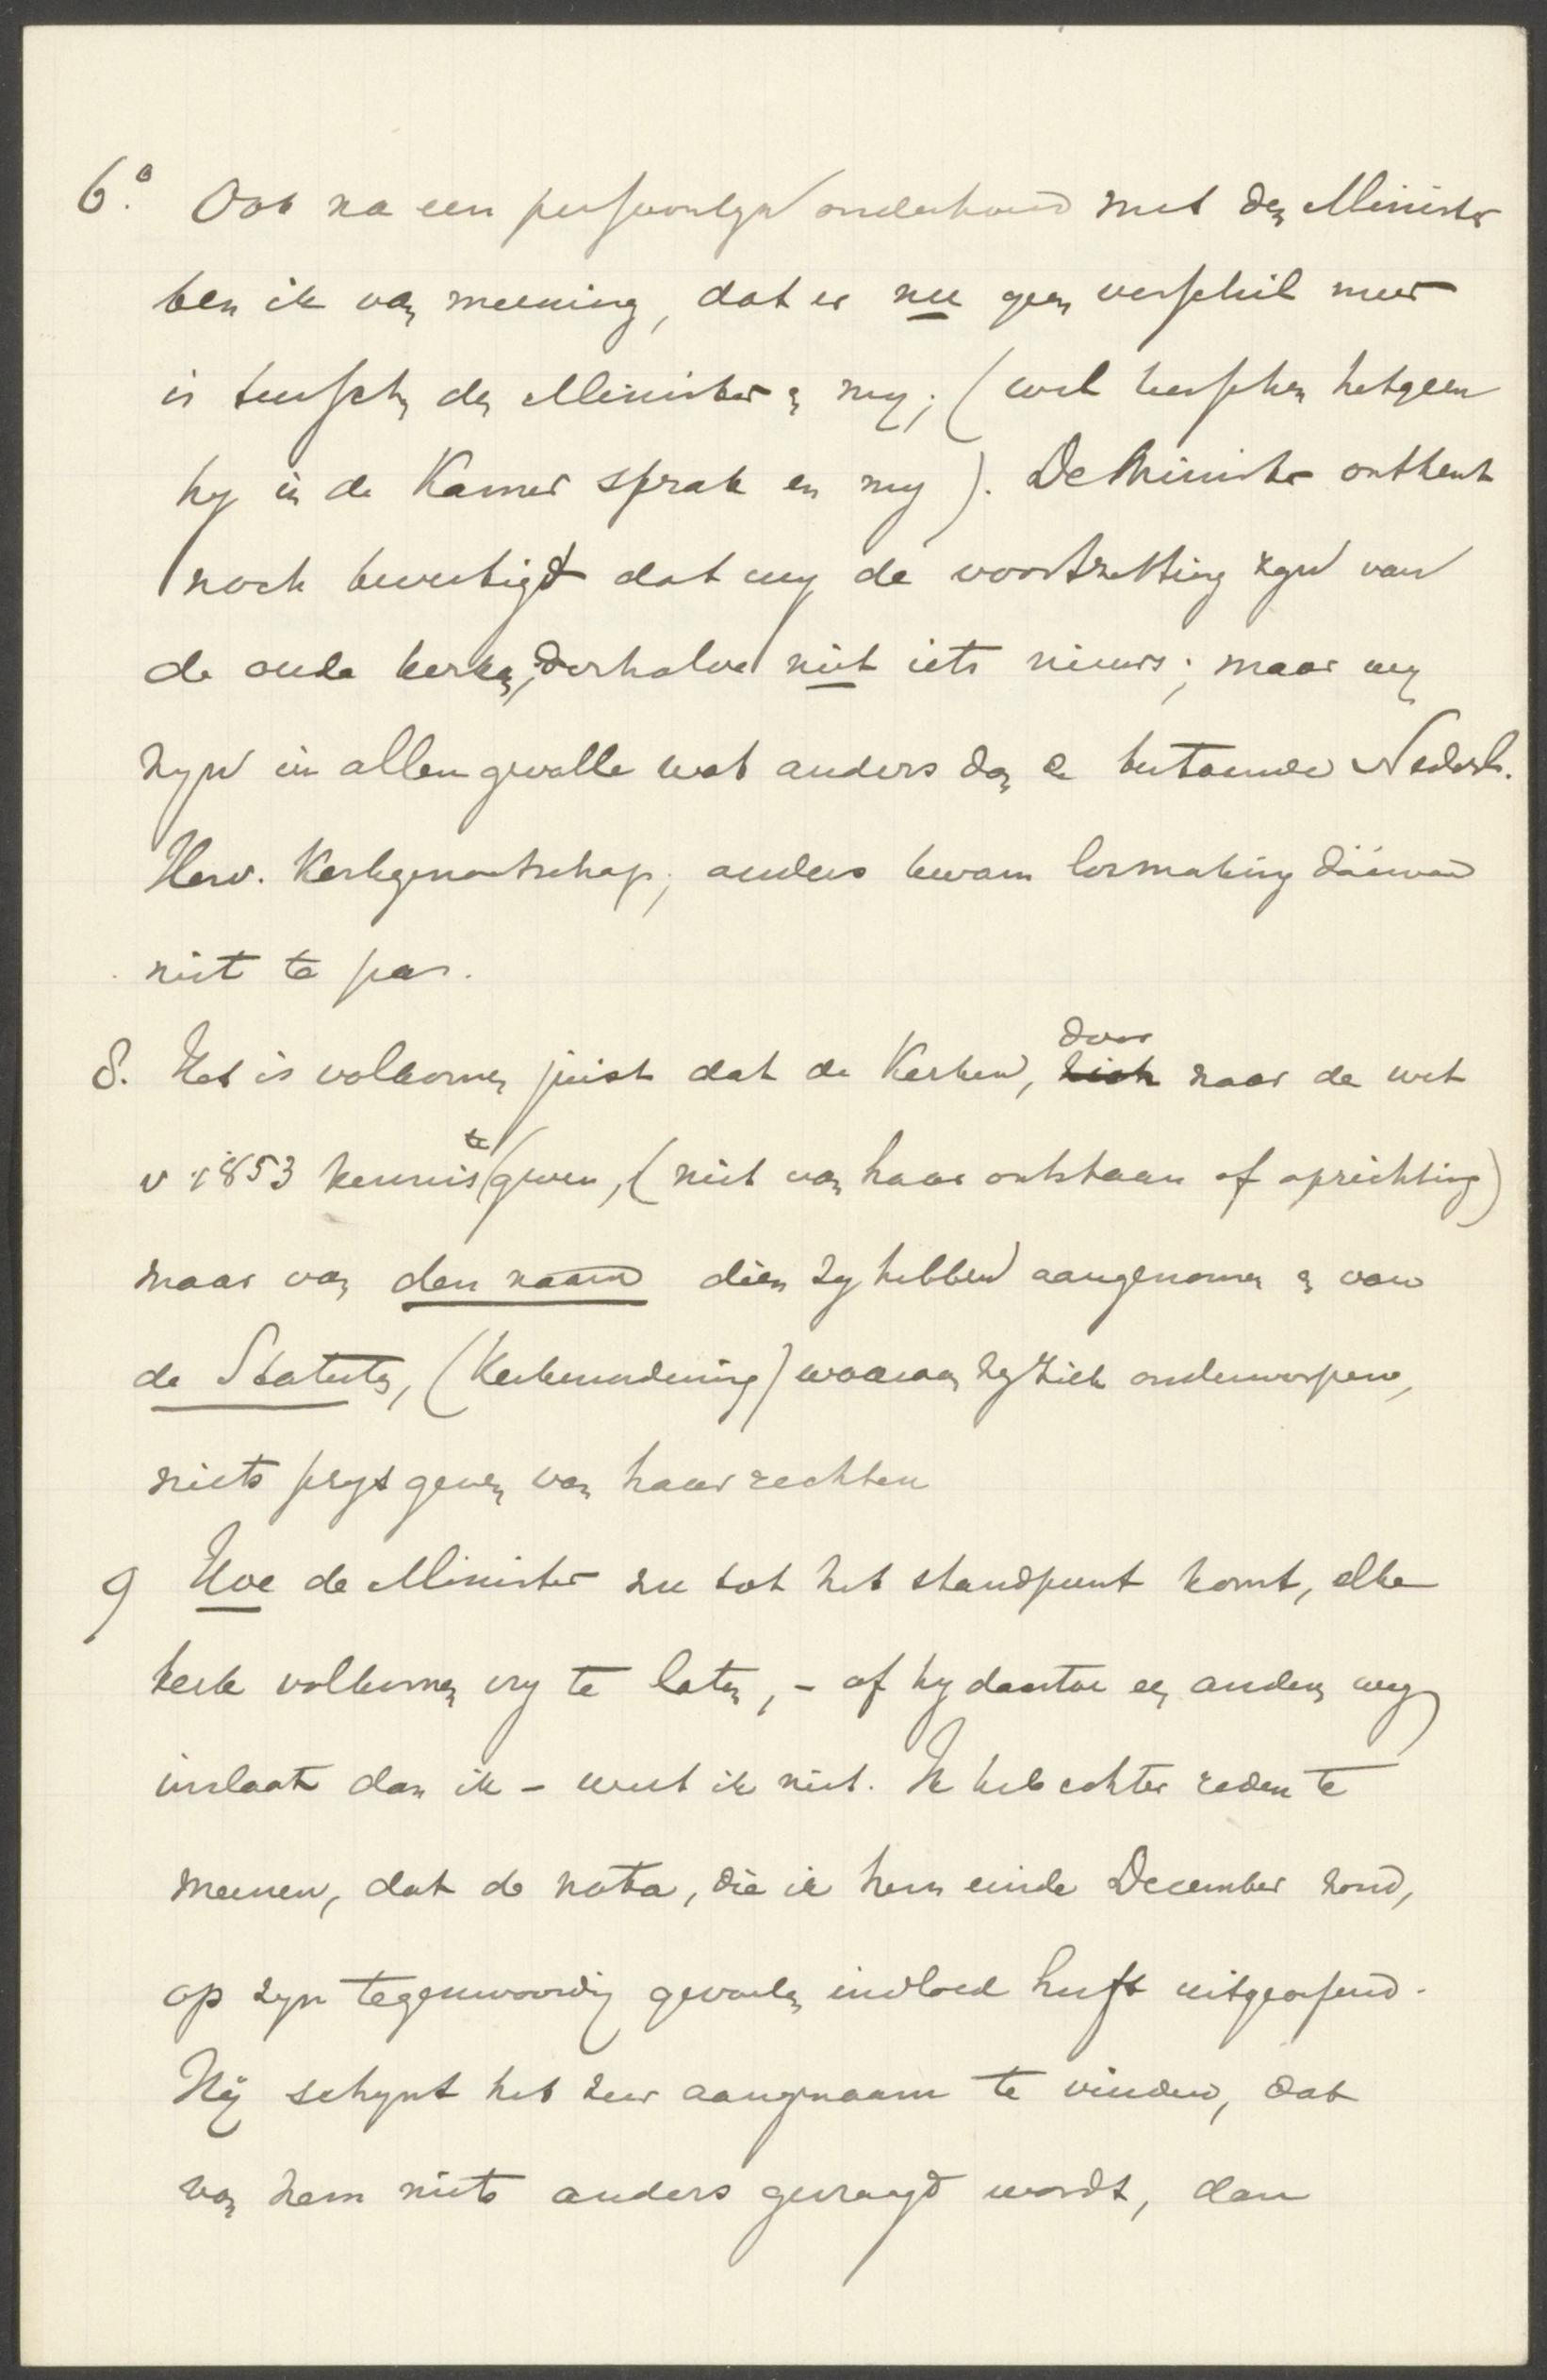 6.° Ook na een persoonlyk onderhoud met den Minister
ben ik van meening, dat er nu geen verschil meer
is tusschen den Minister en my; (wel tusschen hetgeen
hy in de Kamer sprak en my). De Minister ontkent
noch bevestigt dat wy de voortzetting zyn van
de oude kerken, derhalve niet iets nieuws; maar wy
zyn in allen gevalle wat anders dan de bestaande Nederl.
Herv. Kerkgenootschap; anders kwam losmaking daarvan
niet te pas.
8. Het is volkomen juist dat de Kerken, door naar de wet
v 1853 kennis te geven, (niet van haar ontstaan of oprichting)
maar van den naam dien zy hebben aangenomen en van
de Statuten, (Kerkenordening) waaraan zy zich onderwerpen,
niets prys geven van haar rechten
9 Hoe de Minister nu tot het standpunt komt, elke
kerk volkomen vry te laten, - of hy daartoe een anderen weg
inslaat dan ik - weet ik niet. Ik heb echter reden te
meenen, dat de nota, die ik hem einde December zond,
op zyn tegenwoordig gevoelen invloed heeft uitgeoefend.
Hij schynt het zeer aangenaam te vinden, dat
van hem niets anders gevraagd wordt, dan